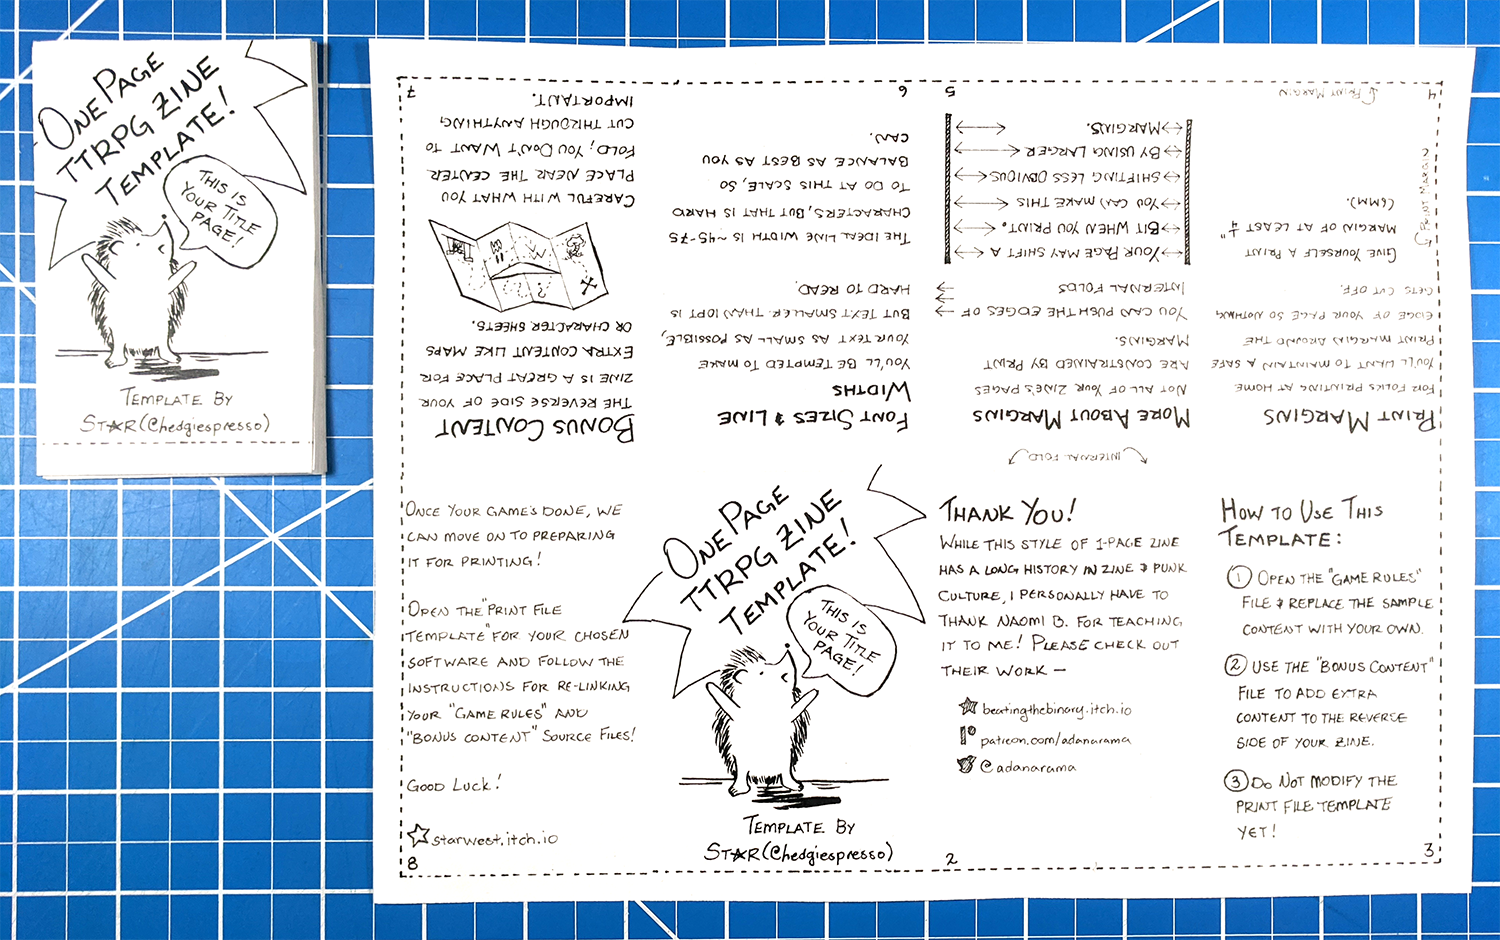 One Page
TTRPG Zine
Template!
This is
your title
page!
Template by
St☆r (@hedgiespresso)
7
Bonus Content
The reverse side of your
zine is a great place for
extra content like maps
or character sheets.
Careful with what you
place near the center
fold; you don't want to
cut through anything
important.
6
Font Sizes & Line
Widths
You'll be tempted to make
your text as small as possible,
but text smaller than 10pt is
hard to read.
The ideal line width is ~45-75
characters, but that is hard
to do at this scale, so,
balance as best as you
can.
5
Internal Fold
More About Margins
Not all of your zine's pages
are constrained by print
margins.
You can push the edges of
internal folds
Your page may shift a
bit when you print.
You can make this
shifting less obvious
by using larger
margins.
4
Print Margins
For folks printing at home
you'll want to maintain a safe
print margin around the
edge of your page so nothing
gets cut off.
Give yourself a print
margin of at least ¼"
(6mm).
Print Margin
Print Margin
Once your game's done, we
can move on to preparing
it for printing!
Open the "Print File
Template" for your chosen
software and follow the
instructions for re-linking
your "Game Rules" and
"Bonus Content" source files!
Good luck!
☆ starwest.itch.io
8
One Page
TTRPG Zine
Template!
This is
your title
page!
Template by
St☆r (@hedgiespresso)
Thank You!
While this style of 1-page zine
has a long history in zine & punk
culture, I personally have to
thank Naomi B. for teaching
it to me! Please check out
their work —
beatingthebinary.itch.io
patreon.com/adanarama
@adanarama
2
How to Use This
Template:
① Open the "Game Rules"
file & replace the sample
content with your own.
② Use the "Bonus Content"
file to add extra
content to the reverse
side of your zine.
③ Do not modify the
print file template
yet!
3